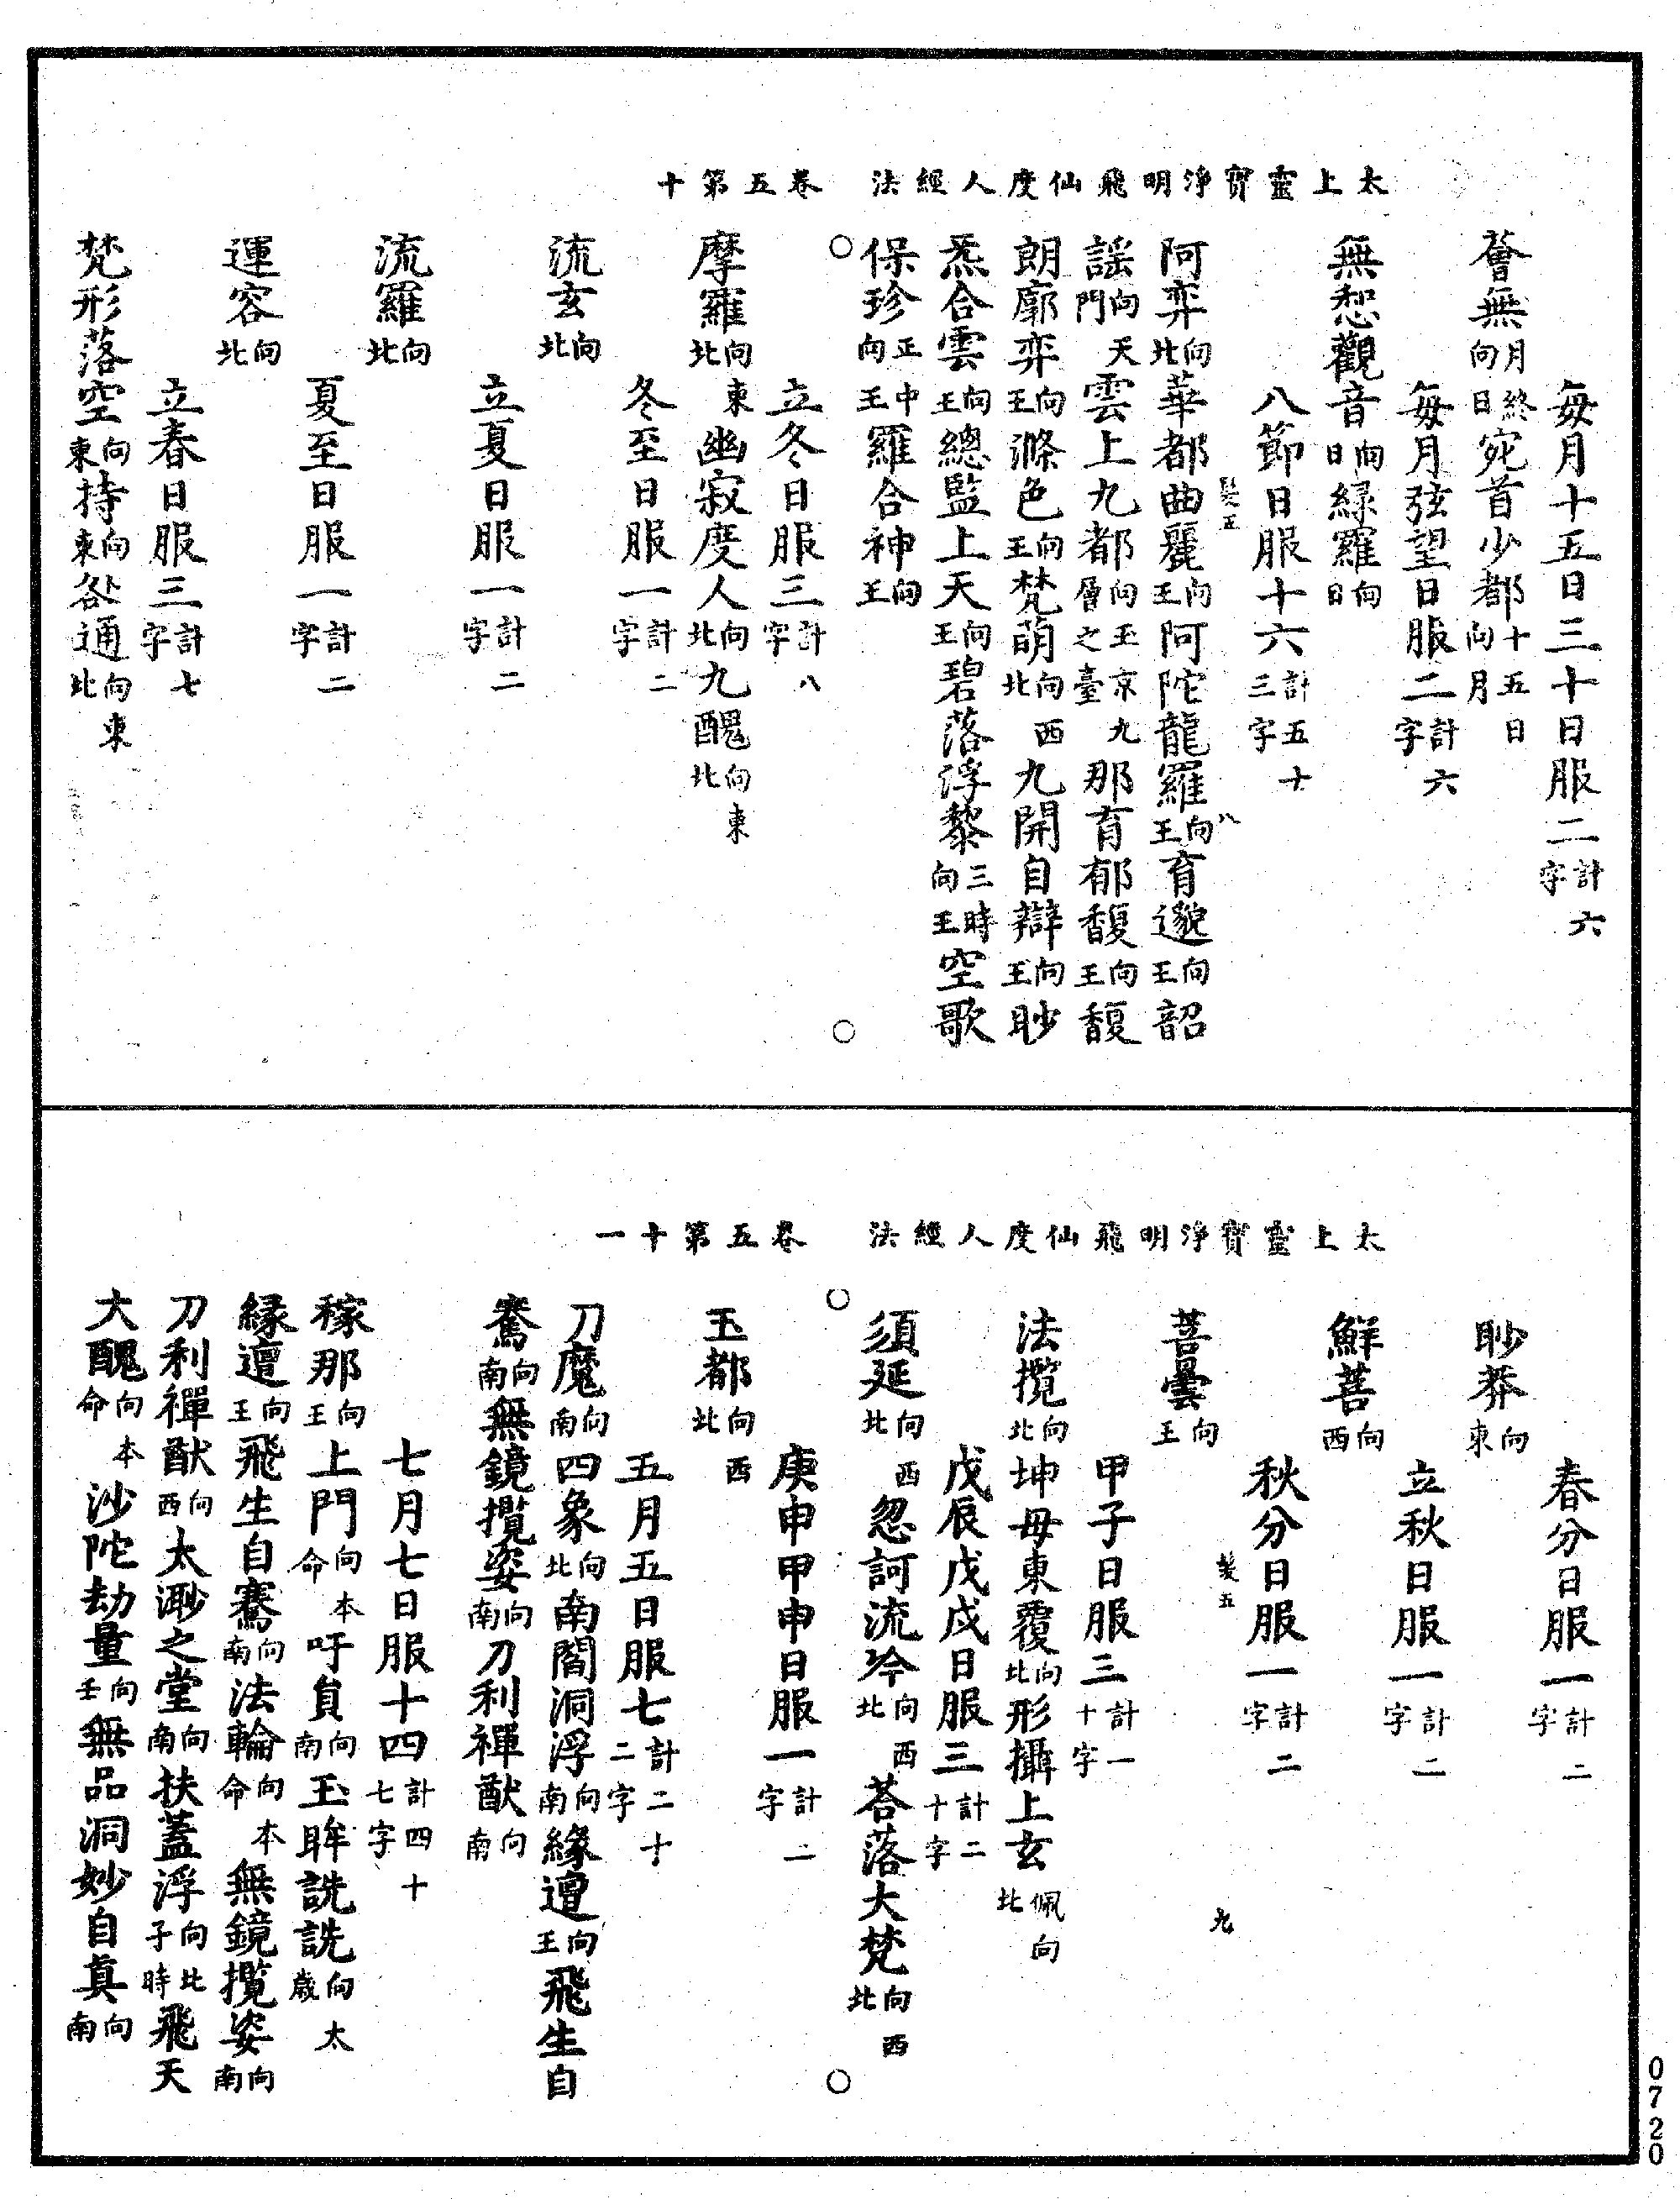 太上靈寶淨明飛仙度人經法　卷五第十
每月十五日三十日服二計六字
薈無月終日向宛首少都十五日向月
每月弦望日服二計六字
無惒觀音向日緑羅向日
八節日服十六計五十三字
髮五　八
阿弈向北華都曲麗向王阿陀龍羅向王育邈向王韶
謡向天門雲上九都向玉京九層之臺那育郁馥向王馥
朗廓弈向王滌色向王梵萌向西北九開自辯向王眇
炁合雲向王總監上天向王碧落浮黎三時向王空歌
保珍正中向王羅合神向王
立冬日服三計八字
摩羅向東北幽寂度人向北九醜向東北
冬至日服一計二字
流玄向北
立夏日服一計二字
流羅向北
夏至日服一計二字
運容向北
立春日服三計七字
梵形落空向東持向東各通向東北
太上靈寶淨明飛仙度人經法　卷五第十一
春分日服一計二字
眇莽向東
立秋日服一計二字
鮮菩向西
秋分日服一計二字
髮五　九
菩曇向王
甲子日服三計一十字
法攬向北坤母東覆向北形攝上玄佩向北
戊辰戊戌日服三計二十字
須延向西北忽訶流吟向西北荅落大梵向西北
庚申甲申日服一計二字
玉都向西北
五月五日服七計二十二字
刀魔向南四象向北南閻洞浮向南緣邅向王飛生自
騫向南無鏡攬姿向南刀利禪猷向南
七月七日服十四計四十七字
稼那向王上門向本命吁負向南玉眸詵詵向太歲
緣邅向王飛生自騫向南法輪向本命無鏡攬姿向南
刀利禪猷向西太渺之堂向南扶蓋浮向北子時飛天
大醜向本命沙陀劫量向壬無品洞妙自真向南
0720